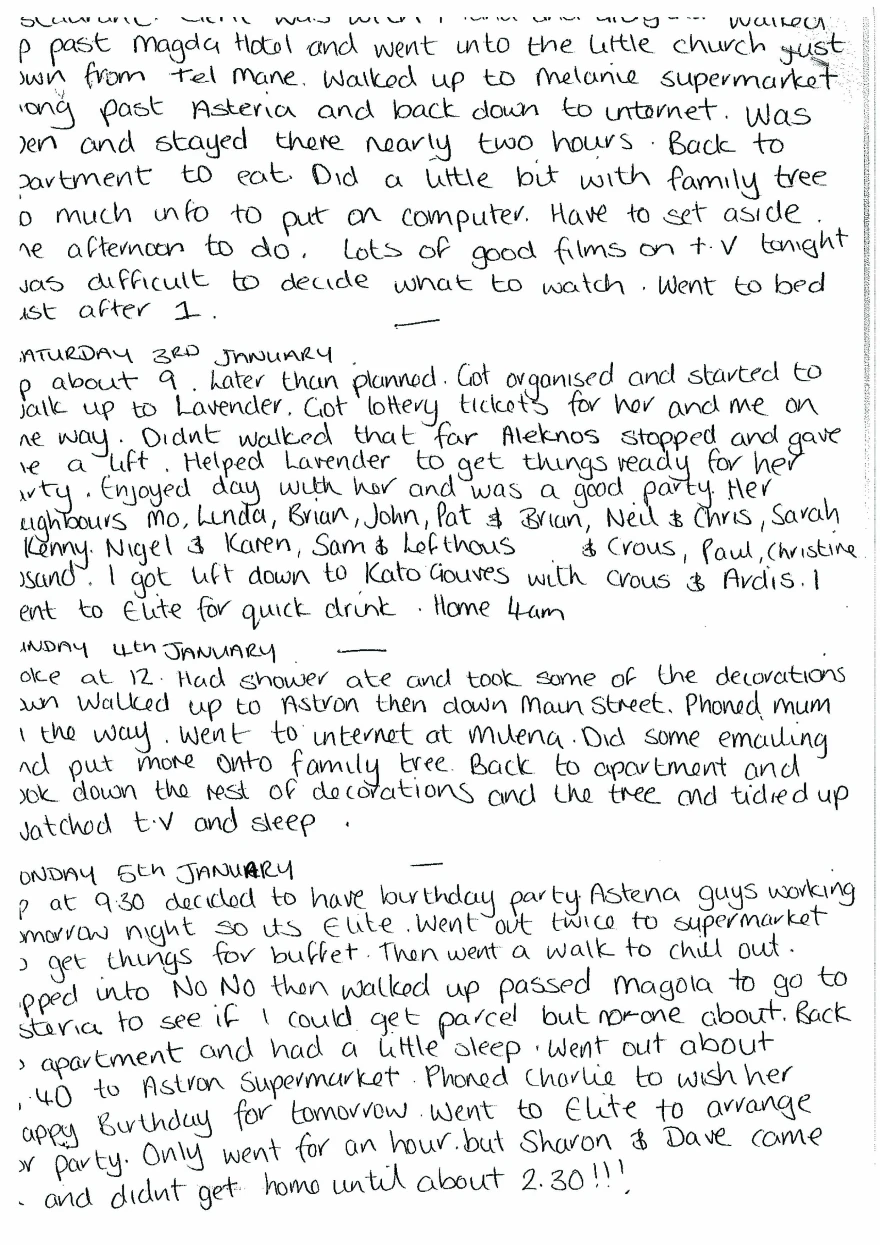 walked
p past Magda Hotel and went into the little church just
own from Tel Mare. Walked up to Melanie supermarket
long past Asteria and back down to internet. Was
pen and stayed there nearly two hours. Back to
partment to eat. Did a little bit with family tree
o much info to put on computer. Have to set aside.
ne afternoon to do. Lots of good films on t.v tonight
was difficult to decide what to watch. Went to bed
ust after 1.
ATURDAY 3RD JANUARY.
p about 9. Later than planned. Got organised and started to
walk up to Lavender. Got lottery tickets for her and me on
he way. Didnt walked that far Aleknos stopped and gave
e a lift. Helped Lavender to get things ready for her
arty. Enjoyed day with her and was a good party. Her
eighbours Mo, Linda, Brian, John, Pat & Brian, Neil & Chris, Sarah
Kenny. Nigel & Karen, Sam & Lofthous & Crous, Paul, Christine
. I got lift down to Kato Gouves with Crous & Ardis. I
ent to Elite for quick drink. Home 4am
UNDAY 4th JANUARY
oke at 12. Had shower ate and took some of the decorations
own Walked up to Astron then down Main Street. Phoned mum
n the way. Went to internet at Milena. Did some emailing
nd put more onto family tree. Back to apartment and
ook down the rest of decorations and the tree and tidied up
Watched t.v and sleep.
ONDAY 5th JANUARY
p at 9.30 decided to have birthday party. Asteria guys working
omorrow night so its Elite. Went out twice to supermarket
o get things for buffet. Then went a walk to chill out.
opped into No No then walked up passed Magda to go to
steria to see if I could get parcel but no-one about. Back
o apartment and had a little sleep. Went out about
.40 to Astron Supermarket. Phoned Charlie to wish her
appy Birthday for tomorrow. Went to Elite to arrange
or party. Only went for an hour. but Sharon & Dave came
. and didnt get home until about 2.30!!!